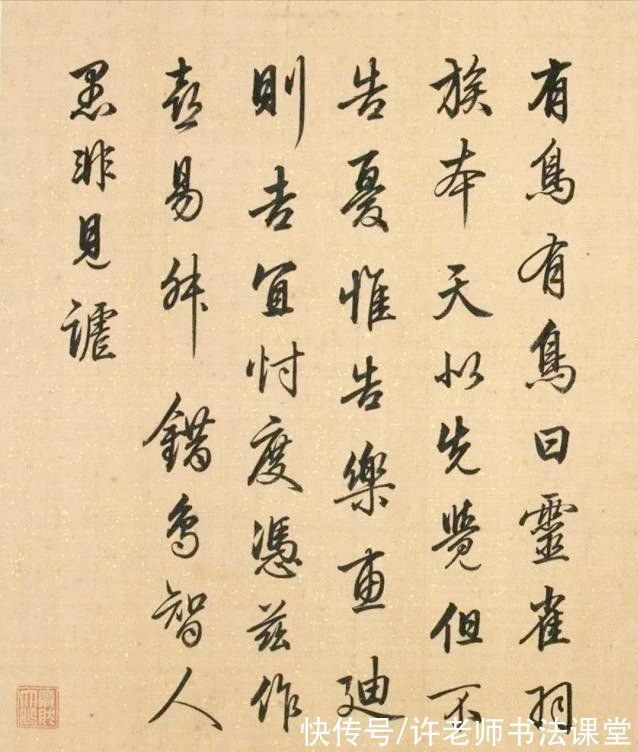 有鳥有鳥曰靈雀羽
族本天以先覺但不
告憂惟告樂惠廸
則吉宜忖度憑茲作
喜易舛錯鳥智人
愚非見謔
快传号/许老师书法课堂